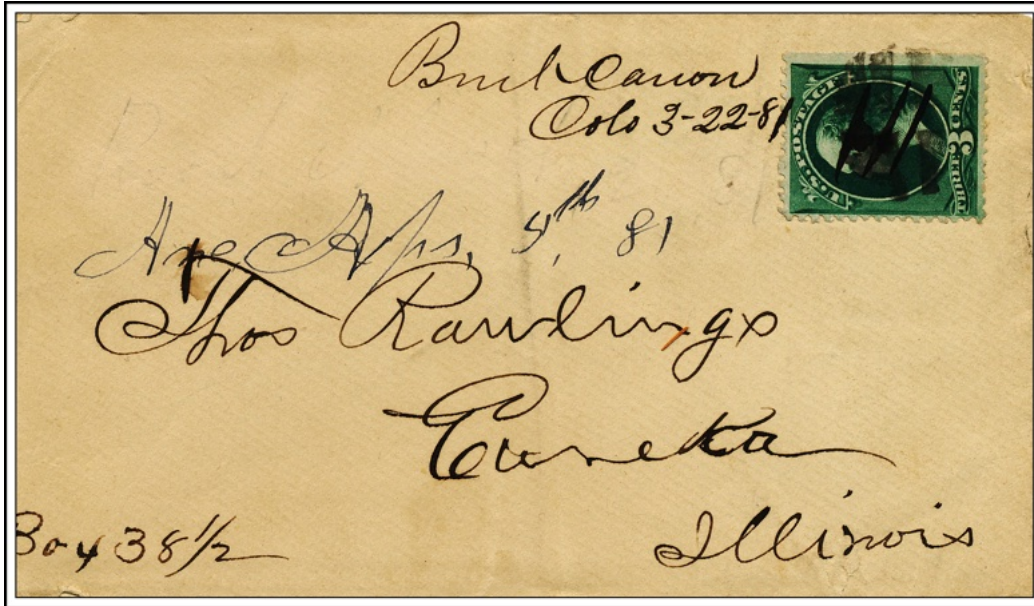 Canon
Colo 3-22-81
U.S. POSTAGE
THREE 3 CENTS
5th 81
Thos Rawlings
Eureka
Illinois
Box 38 1/2